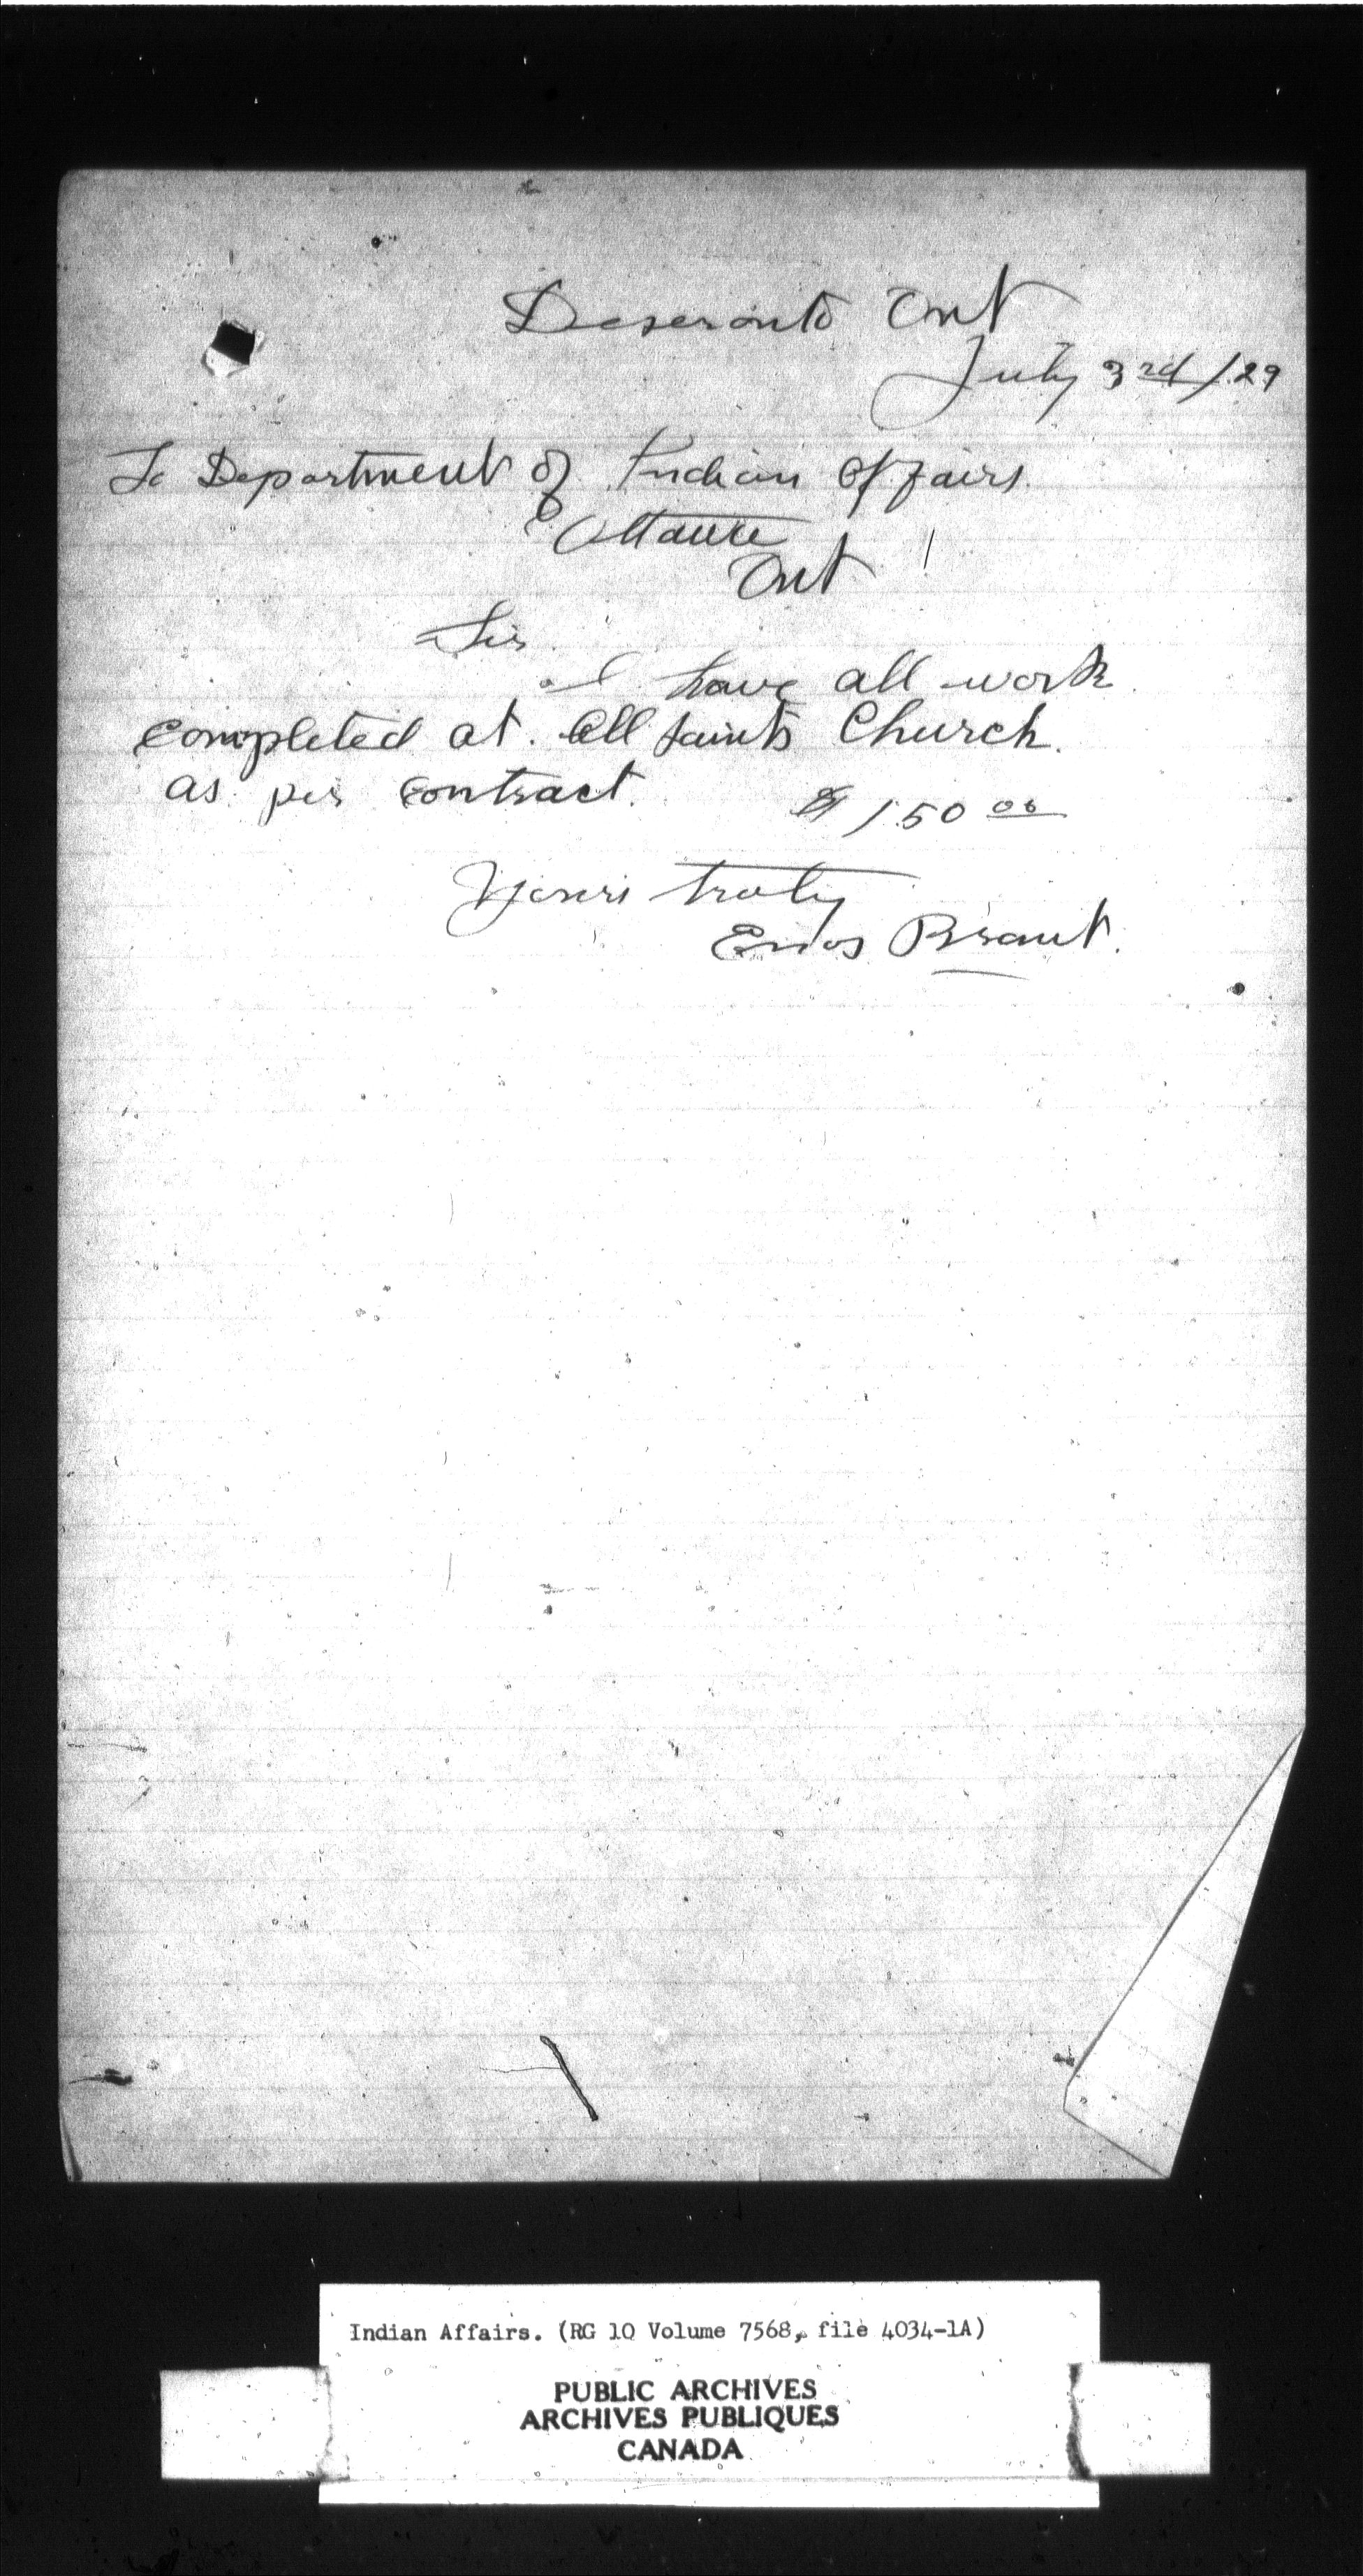 Deseronto Ont
July 3rd/29
To Department of Indian Affairs.
Ottawa
Ont
Sir
I have all work
completed at. All Saints Church.
as per contract. $150 00
Yours truly
Enos Brant.
Indian Affairs. (RG 10 Volume 7568, file 4034-1A)
PUBLIC ARCHIVES
ARCHIVES PUBLIQUES
CANADA